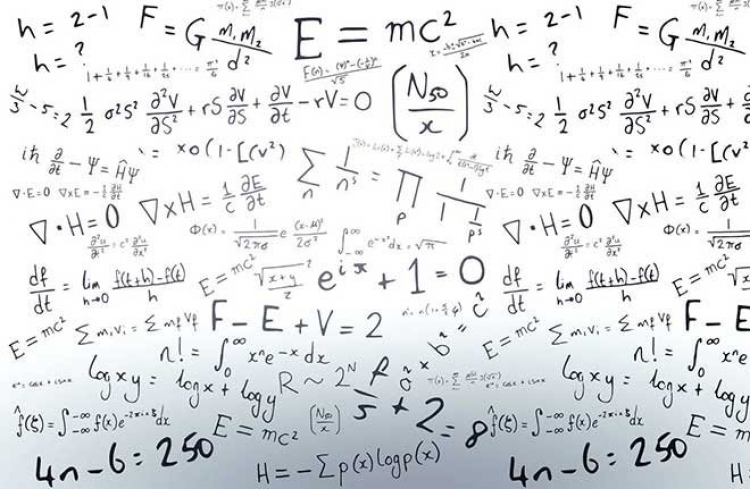 h = 2-1
F = G m₁ m₂ / d²
E = mc²
h = 2-1
F = G m₁ m₂ / d²
h = ?
1 + 1/4 + 1/9 + 1/16 + 1/25 + ... = π²/6
(N50 / x)
h = ?
1 + 1/4 + 1/9 + 1/16 + 1/25 + ... = π²/6
- 5 = 2
1/2 σ²S² ∂²V/∂S² + rS ∂V/∂S + ∂V/∂t - rV = 0
- 5 = 2
1/2 σ²S² ∂²V/∂S² + rS ∂V/∂S +
iħ ∂/∂t - Ψ = ĤΨ
x0(1-[(v²)
∑ₙ 1/nˢ = ∏ₚ 1 / 1 1/pˢ
iħ ∂/∂t - Ψ = ĤΨ
x0(1-[(v²
∇·E=0
∇xE = -1/c ∂H/∂t
∇·E=0
∇xE = -1/c ∂H/∂t
∇·H=0
∇xH = 1/c ∂E/∂t
∇·H=0
∇xH = 1/c ∂E/∂t
∂²u/∂t² = c² ∂²u/∂x²
Φ(x) = 1/√2πσ e (x-μ)²/2σ²
∫ e^-x² dx = √π
∂²u/∂t² = c² ∂²u/∂x²
Φ(x) = 1/√2πσ
df/dt = lim h→0 f(t+h)-f(t) / h
E = mc²
√x+y² / z
e^iπ + 1 = 0
df/dt = lim h→0 f(t+h)-f(t) / h
E = mc²
E = mc²
∑ mᵢ vᵢ = ∑ mf vf
F - E + V = 2
a² × b² = c²
E = mc²
∑ mᵢ vᵢ = ∑ mf vf
F - E
n! = ∫₀^∞ xⁿe^-x dx
n! = ∫₀^∞ xⁿe
log xy = log x + log y
R ~ 2ᴺ
log xy = log x + log y
f̂(ξ) = ∫_-∞^-∞ f(x)e^-2πixξ dx
E = mc²
(N50 / x)
5 + 2 = 8
f̂(ξ) = ∫_-∞^-∞ f(x)e^-2πixξ dx
E = m
4n-6 = 250
H = - ∑ p(x) log p(x)
4n-6 = 250
H